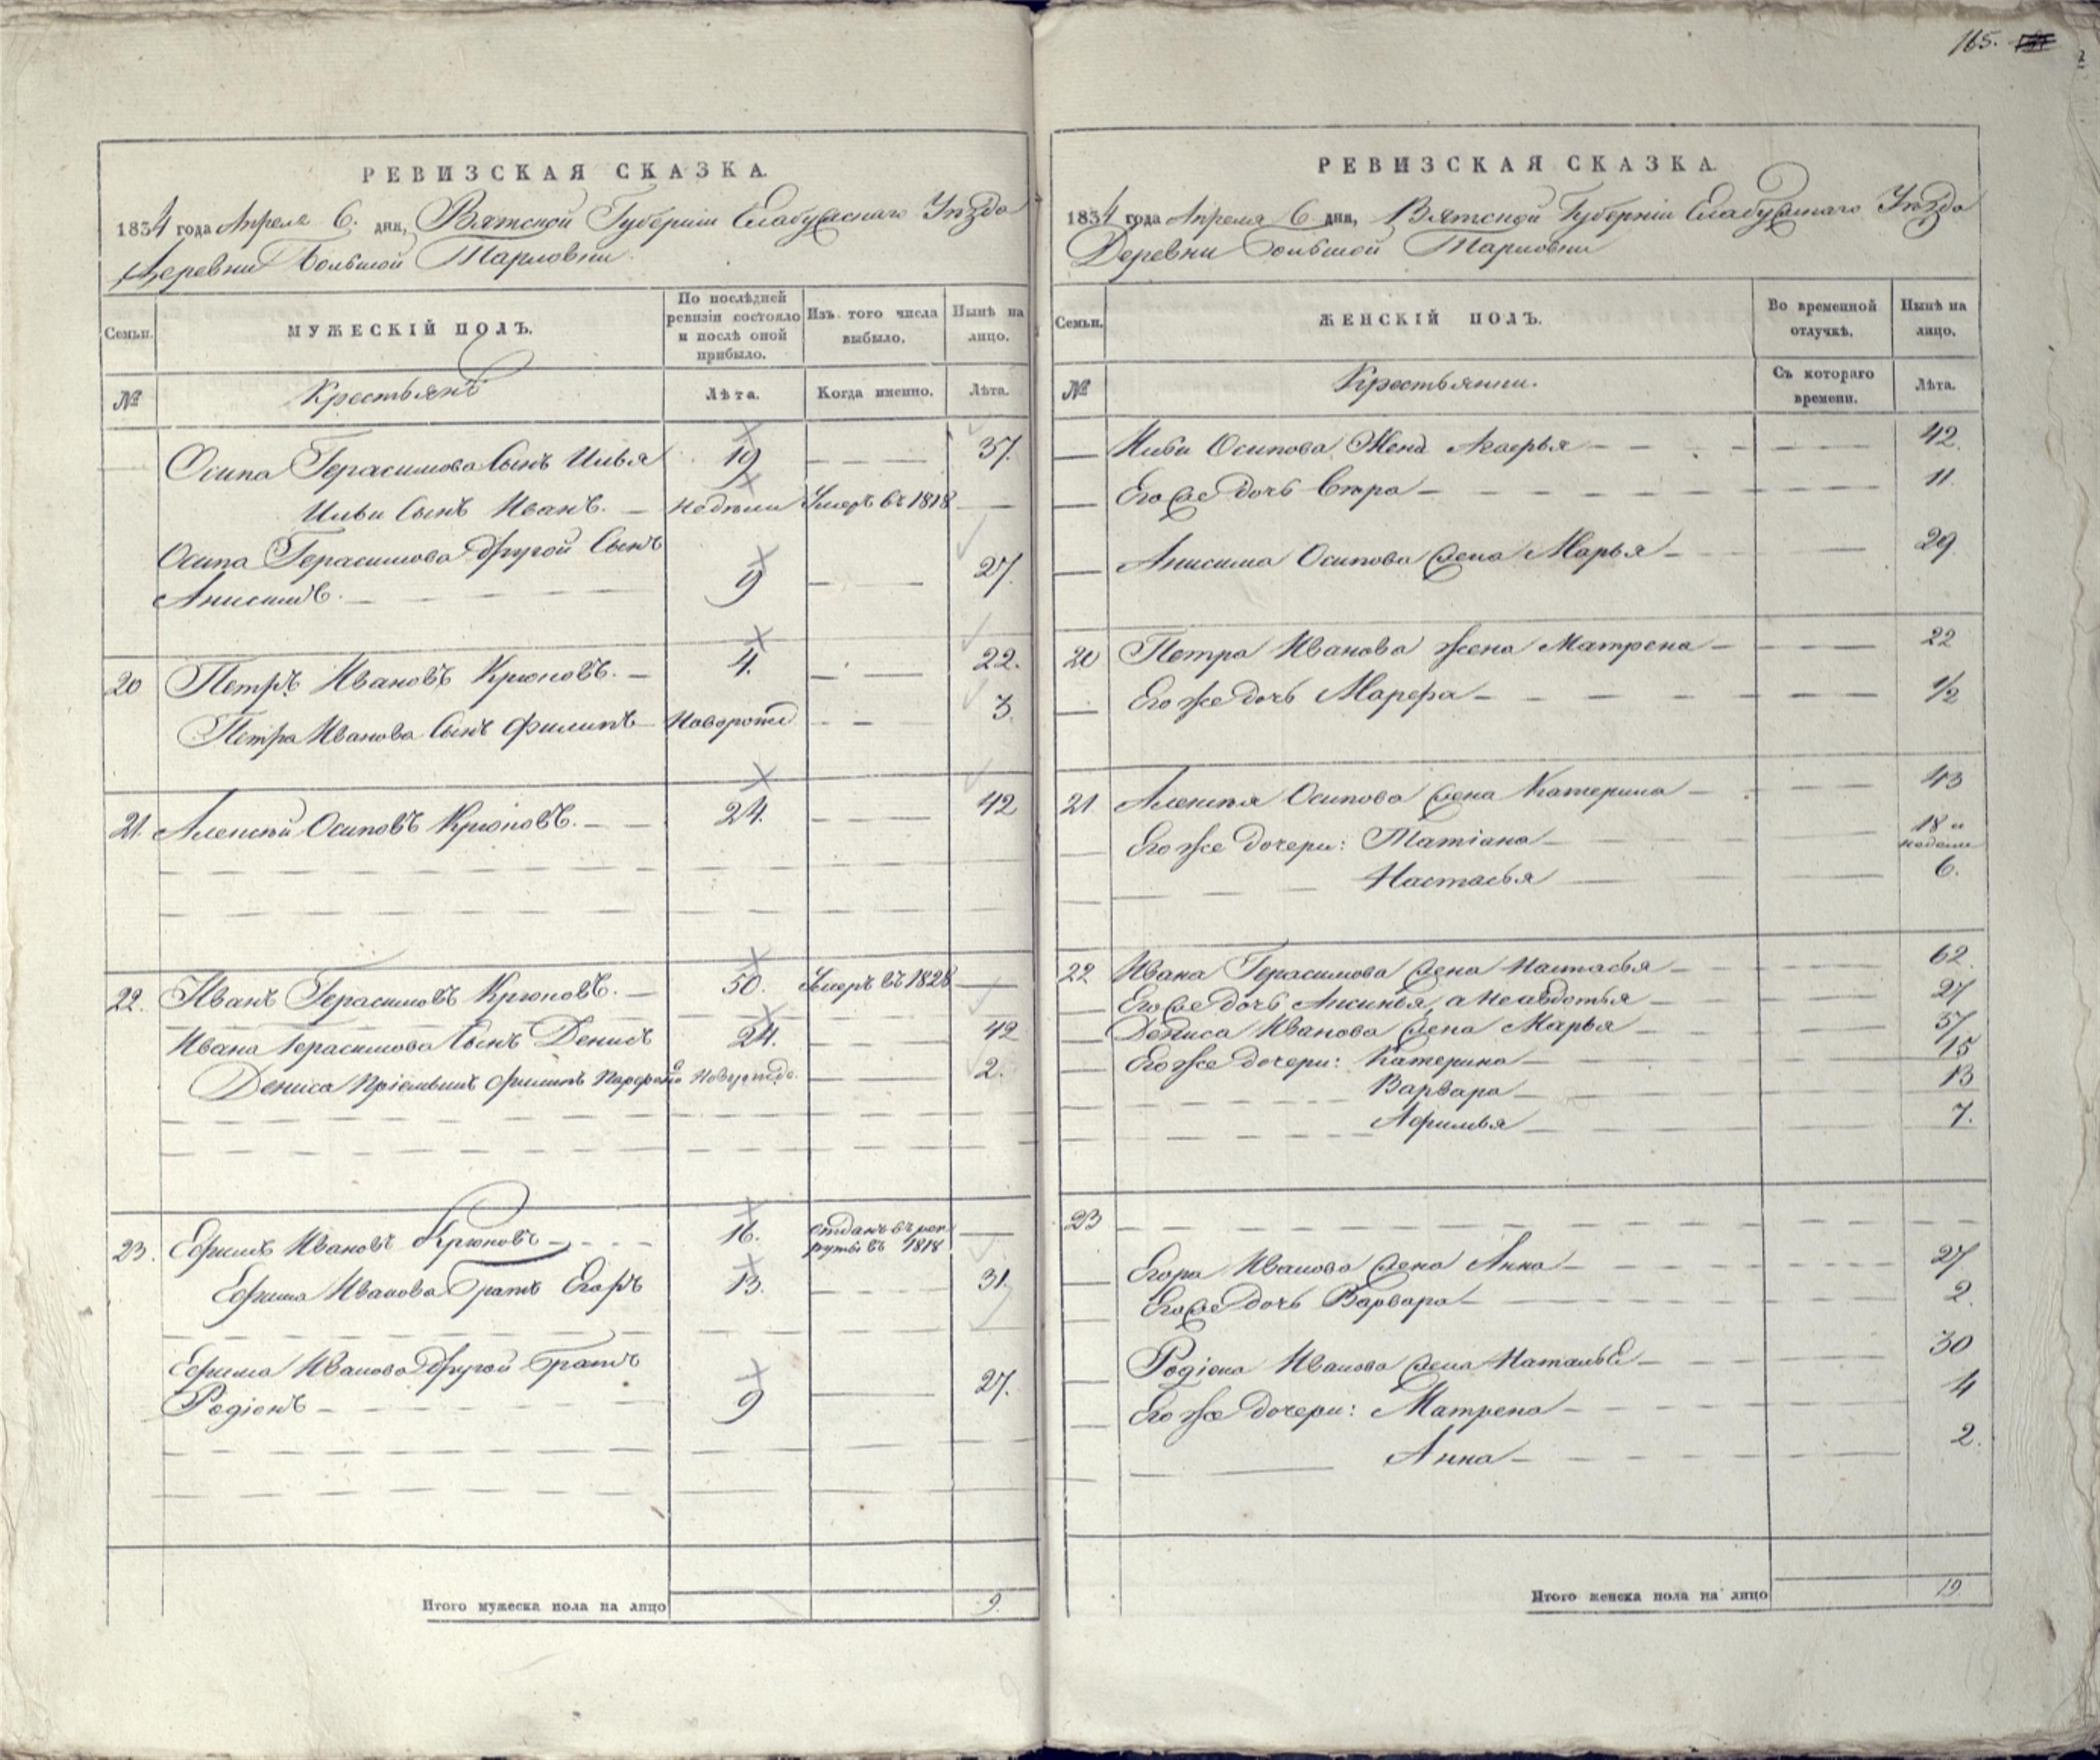 165.
РЕВИЗСКАЯ СКАЗКА.
1834 года Апреля 6. дня, Вятской Губерніи Елабужскаго Уѣзда
Деревни Большой Тарловки
Семьи. МУЖЕСКІЙ ПОЛЪ. По послѣдней ревизіи состояло и послѣ оной прибыло. Изъ того числа выбыло. Нынѣ на лицо.
№ Крестьянъ Лѣта. Когда именно. Лѣта.
Осипа Герасимова Сынъ Илья 19 37.
Ильи Сынъ Иванъ. недѣли Умеръ въ 1818
Осипа Герасимова другой Сынъ
Анисимъ. 9 27.
20 Петръ Ивановъ Крюковъ. 4. 22.
Петра Иванова Сынъ Филипъ Новорожд 3.
21. Алексѣй Осиповъ Крюковъ. 24. 42
22. Иванъ Герасимовъ Крюковъ. 50. Умеръ въ 1828
Ивана Герасимова Сынъ Денисъ 24. 42
Дениса Пріемышъ Филипъ Новорожд. 2.
23. Ефимъ Ивановъ Крюковъ 16. отданъ въ рек
руты въ 1818
Ефима Иванова Братъ Егоръ 13. 31.
Ефима Иванова другой Братъ
Родіонъ 9 27.
Итого мужеска пола на лицо 9.
РЕВИЗСКАЯ СКАЗКА.
1834 года Апреля 6 дня, Вятской Губерніи Елабужскаго Уѣзда
Деревни Большой Тарловки
Семьи. ЖЕНСКІЙ ПОЛЪ. Во временной отлучкѣ. Нынѣ на лицо.
№ Крестьянки. Съ котораго времени. Лѣта.
Ильи Осипова Жена 42.
Его же дочь 11
Анисима Осипова жена Марья 29
20 Петра Иванова жена Матрена 22
Его же дочь Марфа 1/2
21 Алексѣя Осипова жена Катерина 43
Его же дочери: Татіана 18 и
недели
Настасья 6.
22 Ивана Герасимова жена Настасья 62.
Его же дочь Аксинья, а не авдотья 27
Дениса Иванова жена Марья 37
Его же дочери: Катерина 15
Варвара 13
Афимья 7.
23
Егора Иванова жена Анна 27
Его же дочь Варвара 2.
Родіона Иванова жена Наталья 30
Его же дочери: Матрена 4
Анна 2.
Итого женска пола на лицо 19